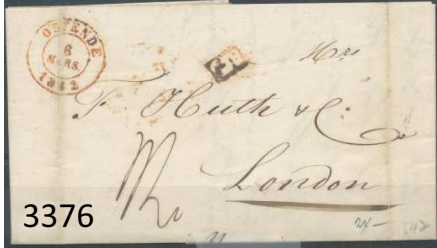 OSTENDE
6
MARS
1842
Mrs
F. Huth & Co
London
3376